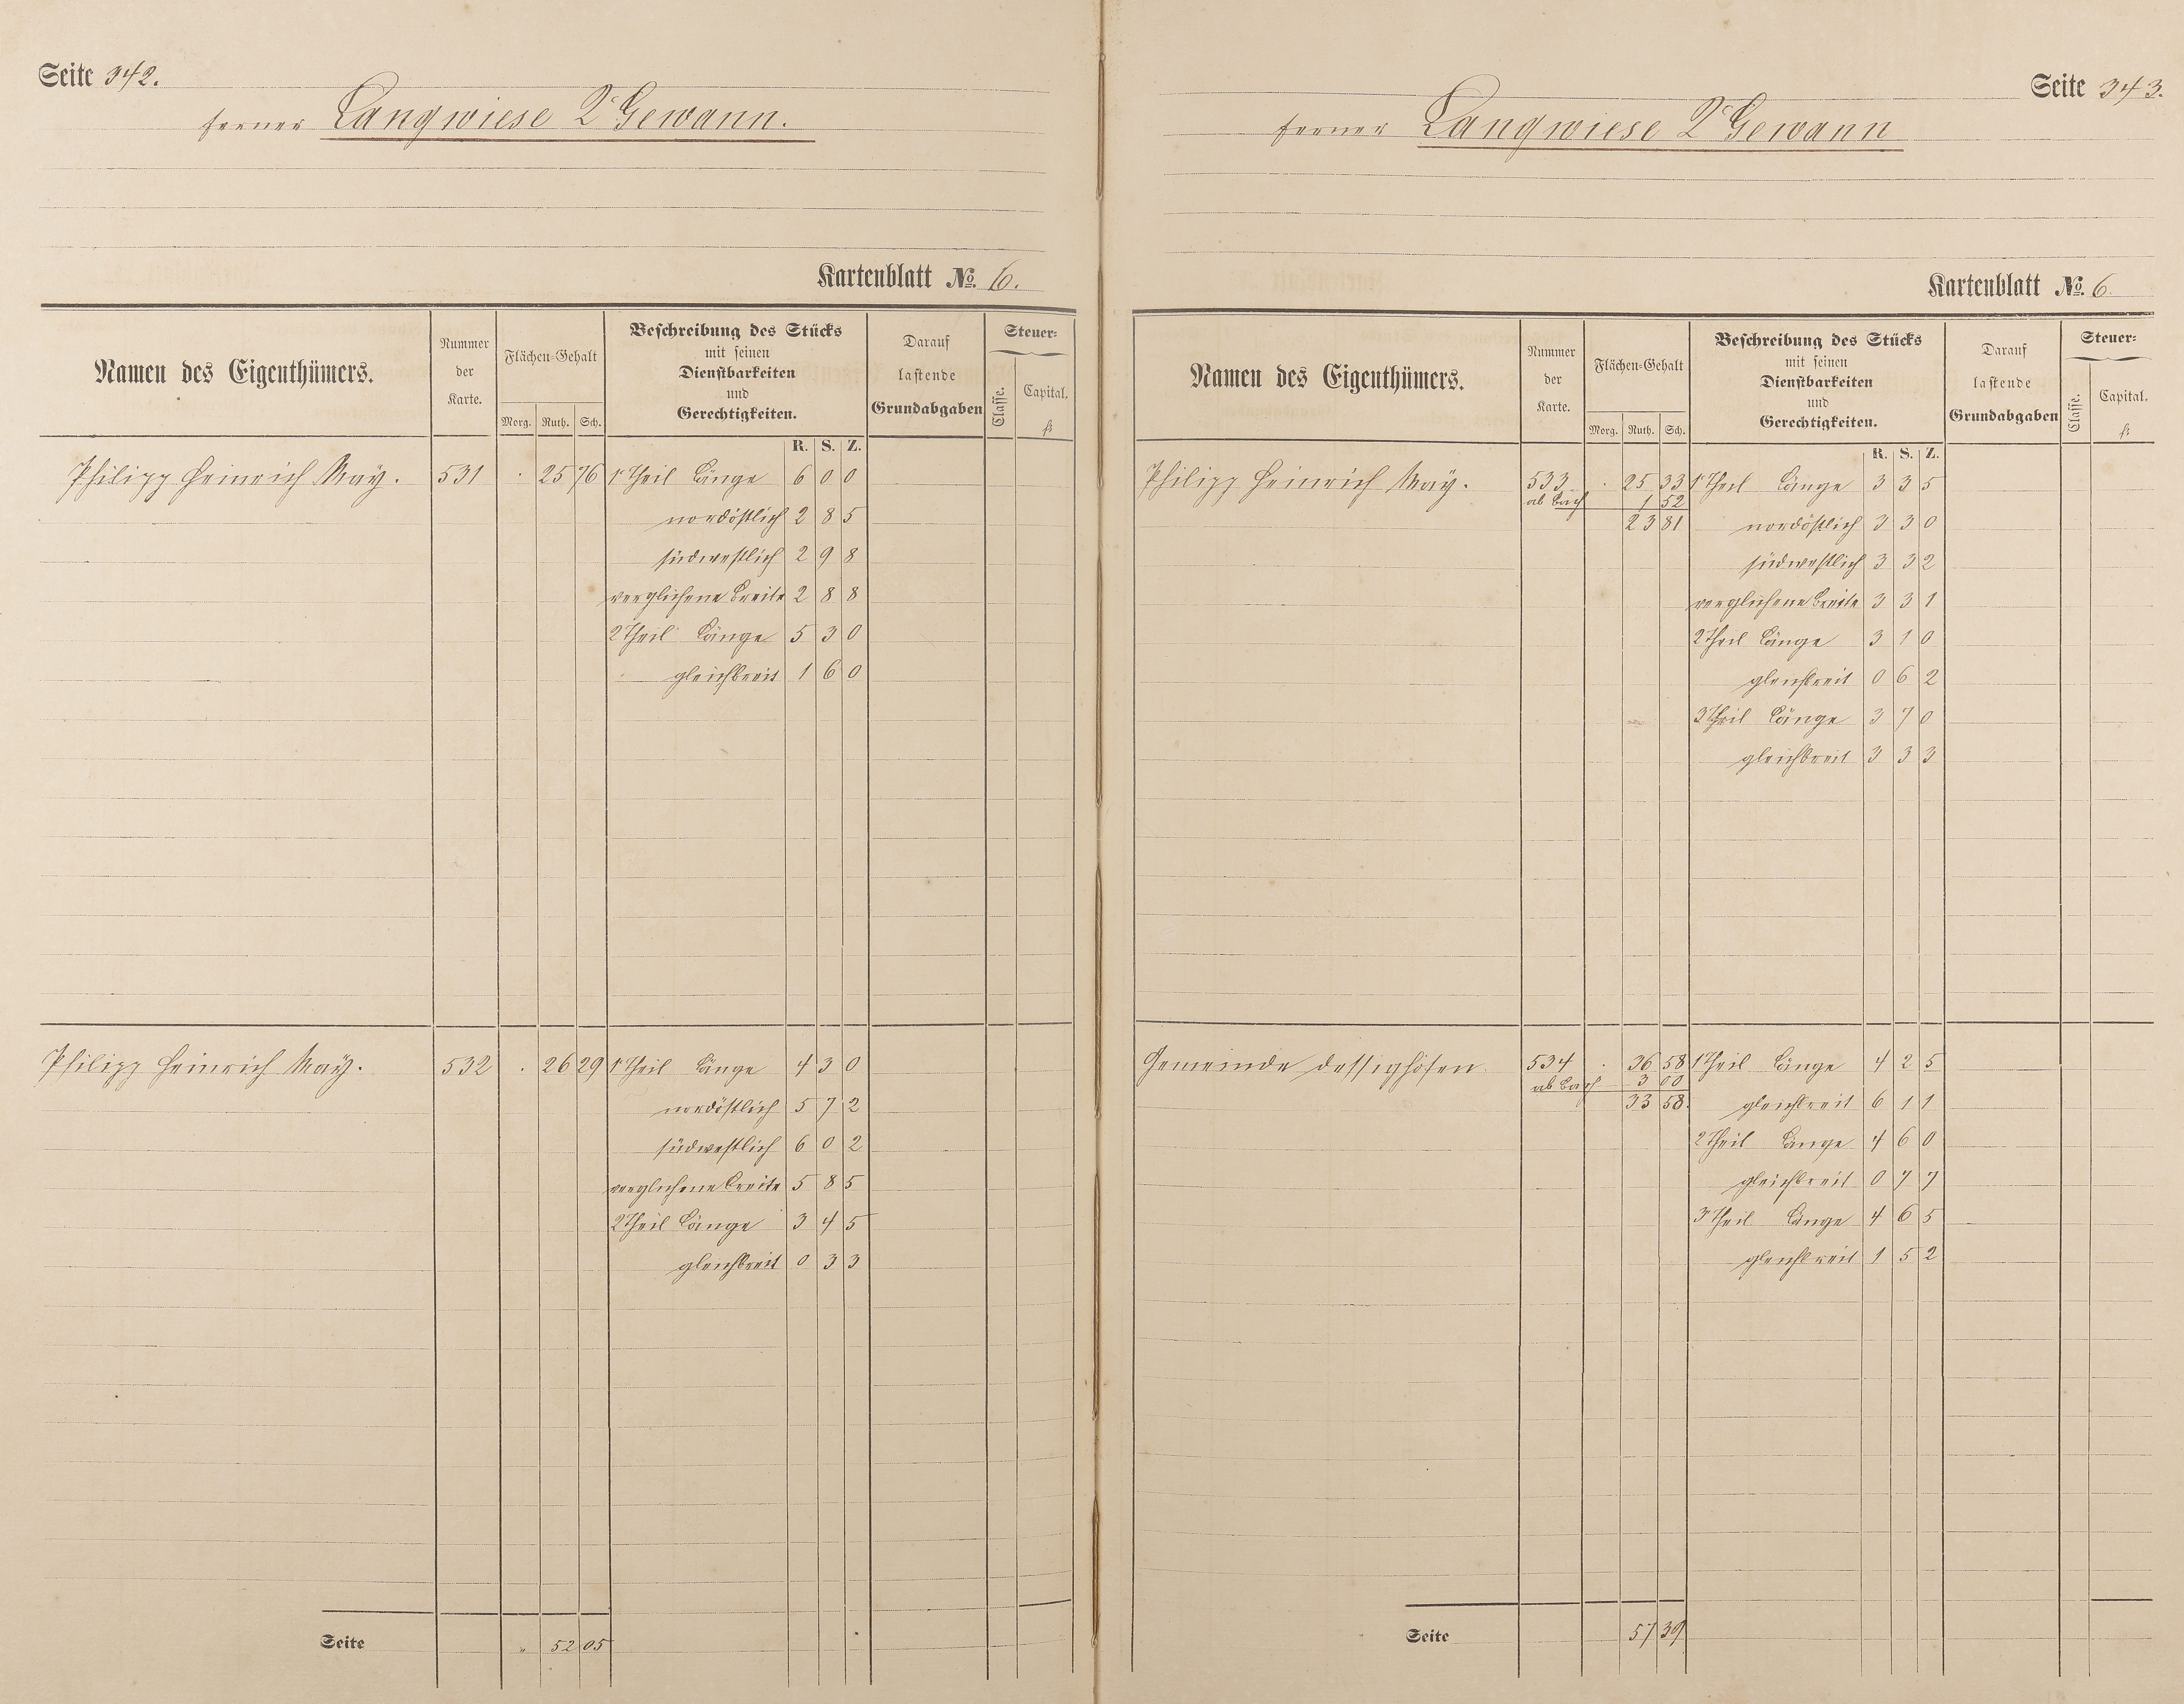 Seite 342.
ferner Langwiese 2ͤ Gewann.
Kartenblatt No. 6.
Namen des Eigenthümers.
Nummer der Karte.
Flächen-Gehalt
Morg. Ruth. Sch.
Beschreibung des Stücks
mit seinen
Dienstbarkeiten
und
Gerechtigkeiten.
Darauf
lastende
Grundabgaben
Steuer-
Classe.
Capital.
fl
R. S. Z.
Philipp Heinrich May. 531 . 25 76 1ͬ Theil Länge 6 0 0
nordöstlich 2 8 5
südwestlich 2 9 8
verglichene Breite 2 8 8
2 Theil Länge 5 3 0
gleichbreit 1 6 0
Philipp Heinrich May. 532 . 26 29 1ͬ Theil Länge 4 3 0
nordöstlich 5 7 2
südwestlich 6 0 2
verglichene Breite 5 8 5
2 Theil Länge 3 4 5
gleichbreit 0 3 3
Seite " 52 05
Seite 343.
ferner Langwiese 2ͤ Gewann
Kartenblatt No. 6.
Namen des Eigenthümers.
Nummer der Karte.
Flächen-Gehalt
Morg. Ruth. Sch.
Beschreibung des Stücks
mit seinen
Dienstbarkeiten
und
Gerechtigkeiten.
Darauf
lastende
Grundabgaben
Steuer-
Classe.
Capital.
fl
R. S. Z.
Philipp Heinrich May. 533 . 25 33 1ͬ Theil Länge 3 3 5
ab Bach 1 52
23 81 nordöstlich 3 3 0
südwestlich 3 3 2
verglichene Breite 3 3 1
2 Theil Länge 3 1 0
gleichbreit 0 6 2
3 Theil Länge 3 7 0
gleichbreit 3 3 3
Gemeinde Dessighofen 534 . 36 58 1 Theil Länge 4 2 5
ab Bach 3 00
33 58. gleichbreit 6 1 1
2 Theil Länge 4 6 0
gleichbreit 0 7 7
3 Theil Länge 4 6 5
gleichbreit 1 5 2
Seite 57 39